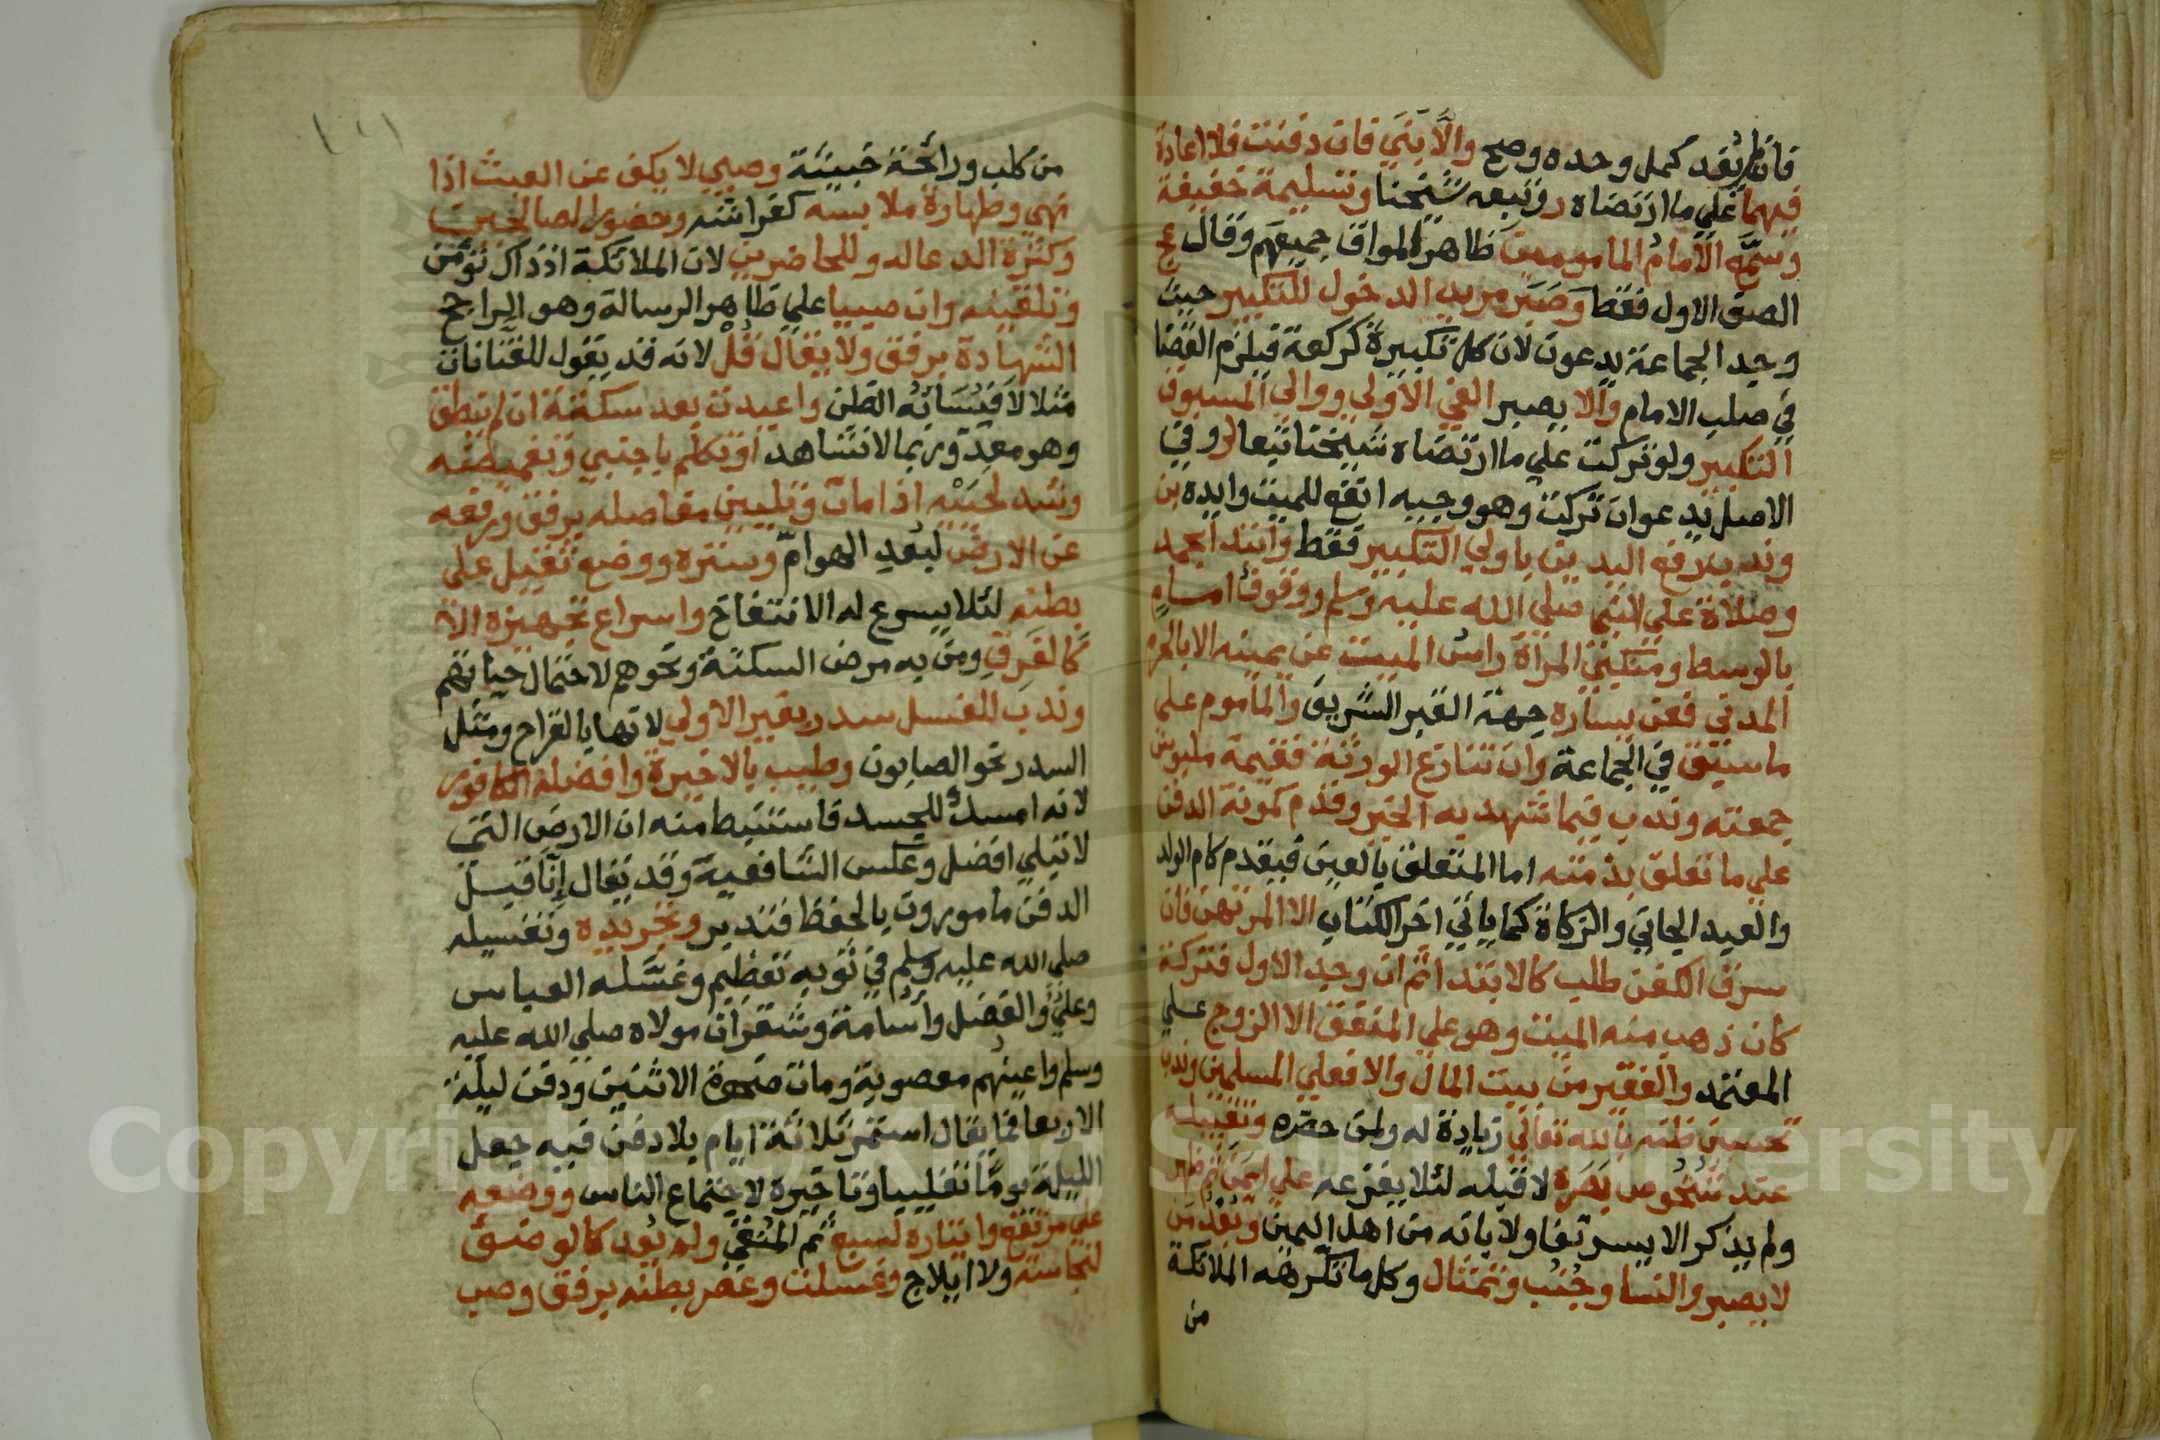 فان بعد كمل وحده وصح والا بنى فان دفنت فلا اعادة
فيهما على ما ارتضاه ر وتبعه شيخنا وتسليمة خفيفة
وسمع الامام المامومين ظاهر المواق جميعهم وقال عج
الصف الاول فقط وصبر مريد الدخول للتكبير حيث
وجد الجماعة يدعون لان كل تكبيرة كركعة فيلزم القضا
في صلب الامام والا يصبر الغي الاولي ووالى المسبوق
التكبير ولو تركت على ما ارتضاه شيخنا تبعا لر وفي
الاصل يدعوان تركت وهو وجيه انفع للميت وايده بن
وندب رفع اليدين باولي التكبير فقط وابتدا بحمد
وصلاة على النبي صلى الله عليه وسلم ووقوف امام
بالوسط ومنكبي المراة راس الميت عن يمينه الا بالحرم
المدني فعن يساره جهة القبر الشريف والماموم على
ما سبق في الجماعة وان تنازع الورثة فقيمة ملبوس
جمعته وندب فيما تشهد به الخير وقدم كمونة الدفن
على ما تعلق بذمته اما المتعلق بالعين فيقدم كام الولد
والعبد الجاني والزكاة كما ياتي اخر الكتاب الا المرتهن فان
سرق الكفن طلب كالابتدا ثم ان وجد الاول فتركة
كان ذهب منه الميت وهو على المنفق الا الزوج على
المعتمد والفقير من بيت المال والا فعلي المسلمين وندب
تحسين ظنه بالله تعالى زيادة له ولمن حضره وتقبيله
عند شخوص بصره لا قبله لئلا يفزعه على ايمن ثم ظهر
ولم يذكر الايسر تفاولا بانه من اهل اليمين وبعد من
لا يصبر والنسا وجنب وتمثال وكل ما تكرهه الملائكة
من
من كلب ورائحة خبيثة وصبي لا يكف عن العبث اذا
نهي وطهارة ملابسه كفراشه وحضور الصالحين
وكثرة الدعا له وللحاضرين لان الملائكة اذ ذاك تؤمن
وتلقينه وان صبيا على ظاهر الرسالة وهو الراجح
الشهادة برفق ولا يقال قل لانه قد يقول للفتانان
مثلا لا فيساء به الظن واعيدت بعد سكتة ان لم ينطق
وهو معد وربما لا نشاهد او تكلم باجنبي وتغميضه
وشد لحييه اذا مات وتليين مفاصله برفق ورفعه
عن الارض لبعد الهوام وستره ووضع ثقيل على
بطنه لئلا يسرع له الانتفاخ واسراع تجهيزه الا
كالغرق ومن به مرض السكتة ونحوهم لاحتمال حياتهم
وندب للغسل سدر بغير الاولي لانها بالقراح ومثل
السدر نحو الصابون وطيب بالاخيرة وافضله الكافور
لانه امسك للجسد فاستنبط منه ان الارض التي
لا تبلي افضل وعكس الشافعية وقد يقال انا قبل
الدفن مامورون بالحفظ فتدبر وتجريده وتغسيله
صلى الله عليه وسلم في ثوبه تعظيم وغسله العباس
وعلي والفضل واسامة وشقران مولاه صلى الله عليه
وسلم واعينهم معصوبة ومات ضحوة الاثنين ودفن ليلة
الاربعا فما يقال استمر ثلاثة ايام بلا دفن فيه جعل
الليلة يوما تغليبا وتاخيره لاجتماع الناس ووضعه
على مرتفع وايتاره لسبع ثم المنقي ولم يعد كالوضو
لنجاسة ولا ايلاج وغسلت وعصر بطنه برفق وصب
Copyright © King Saud University